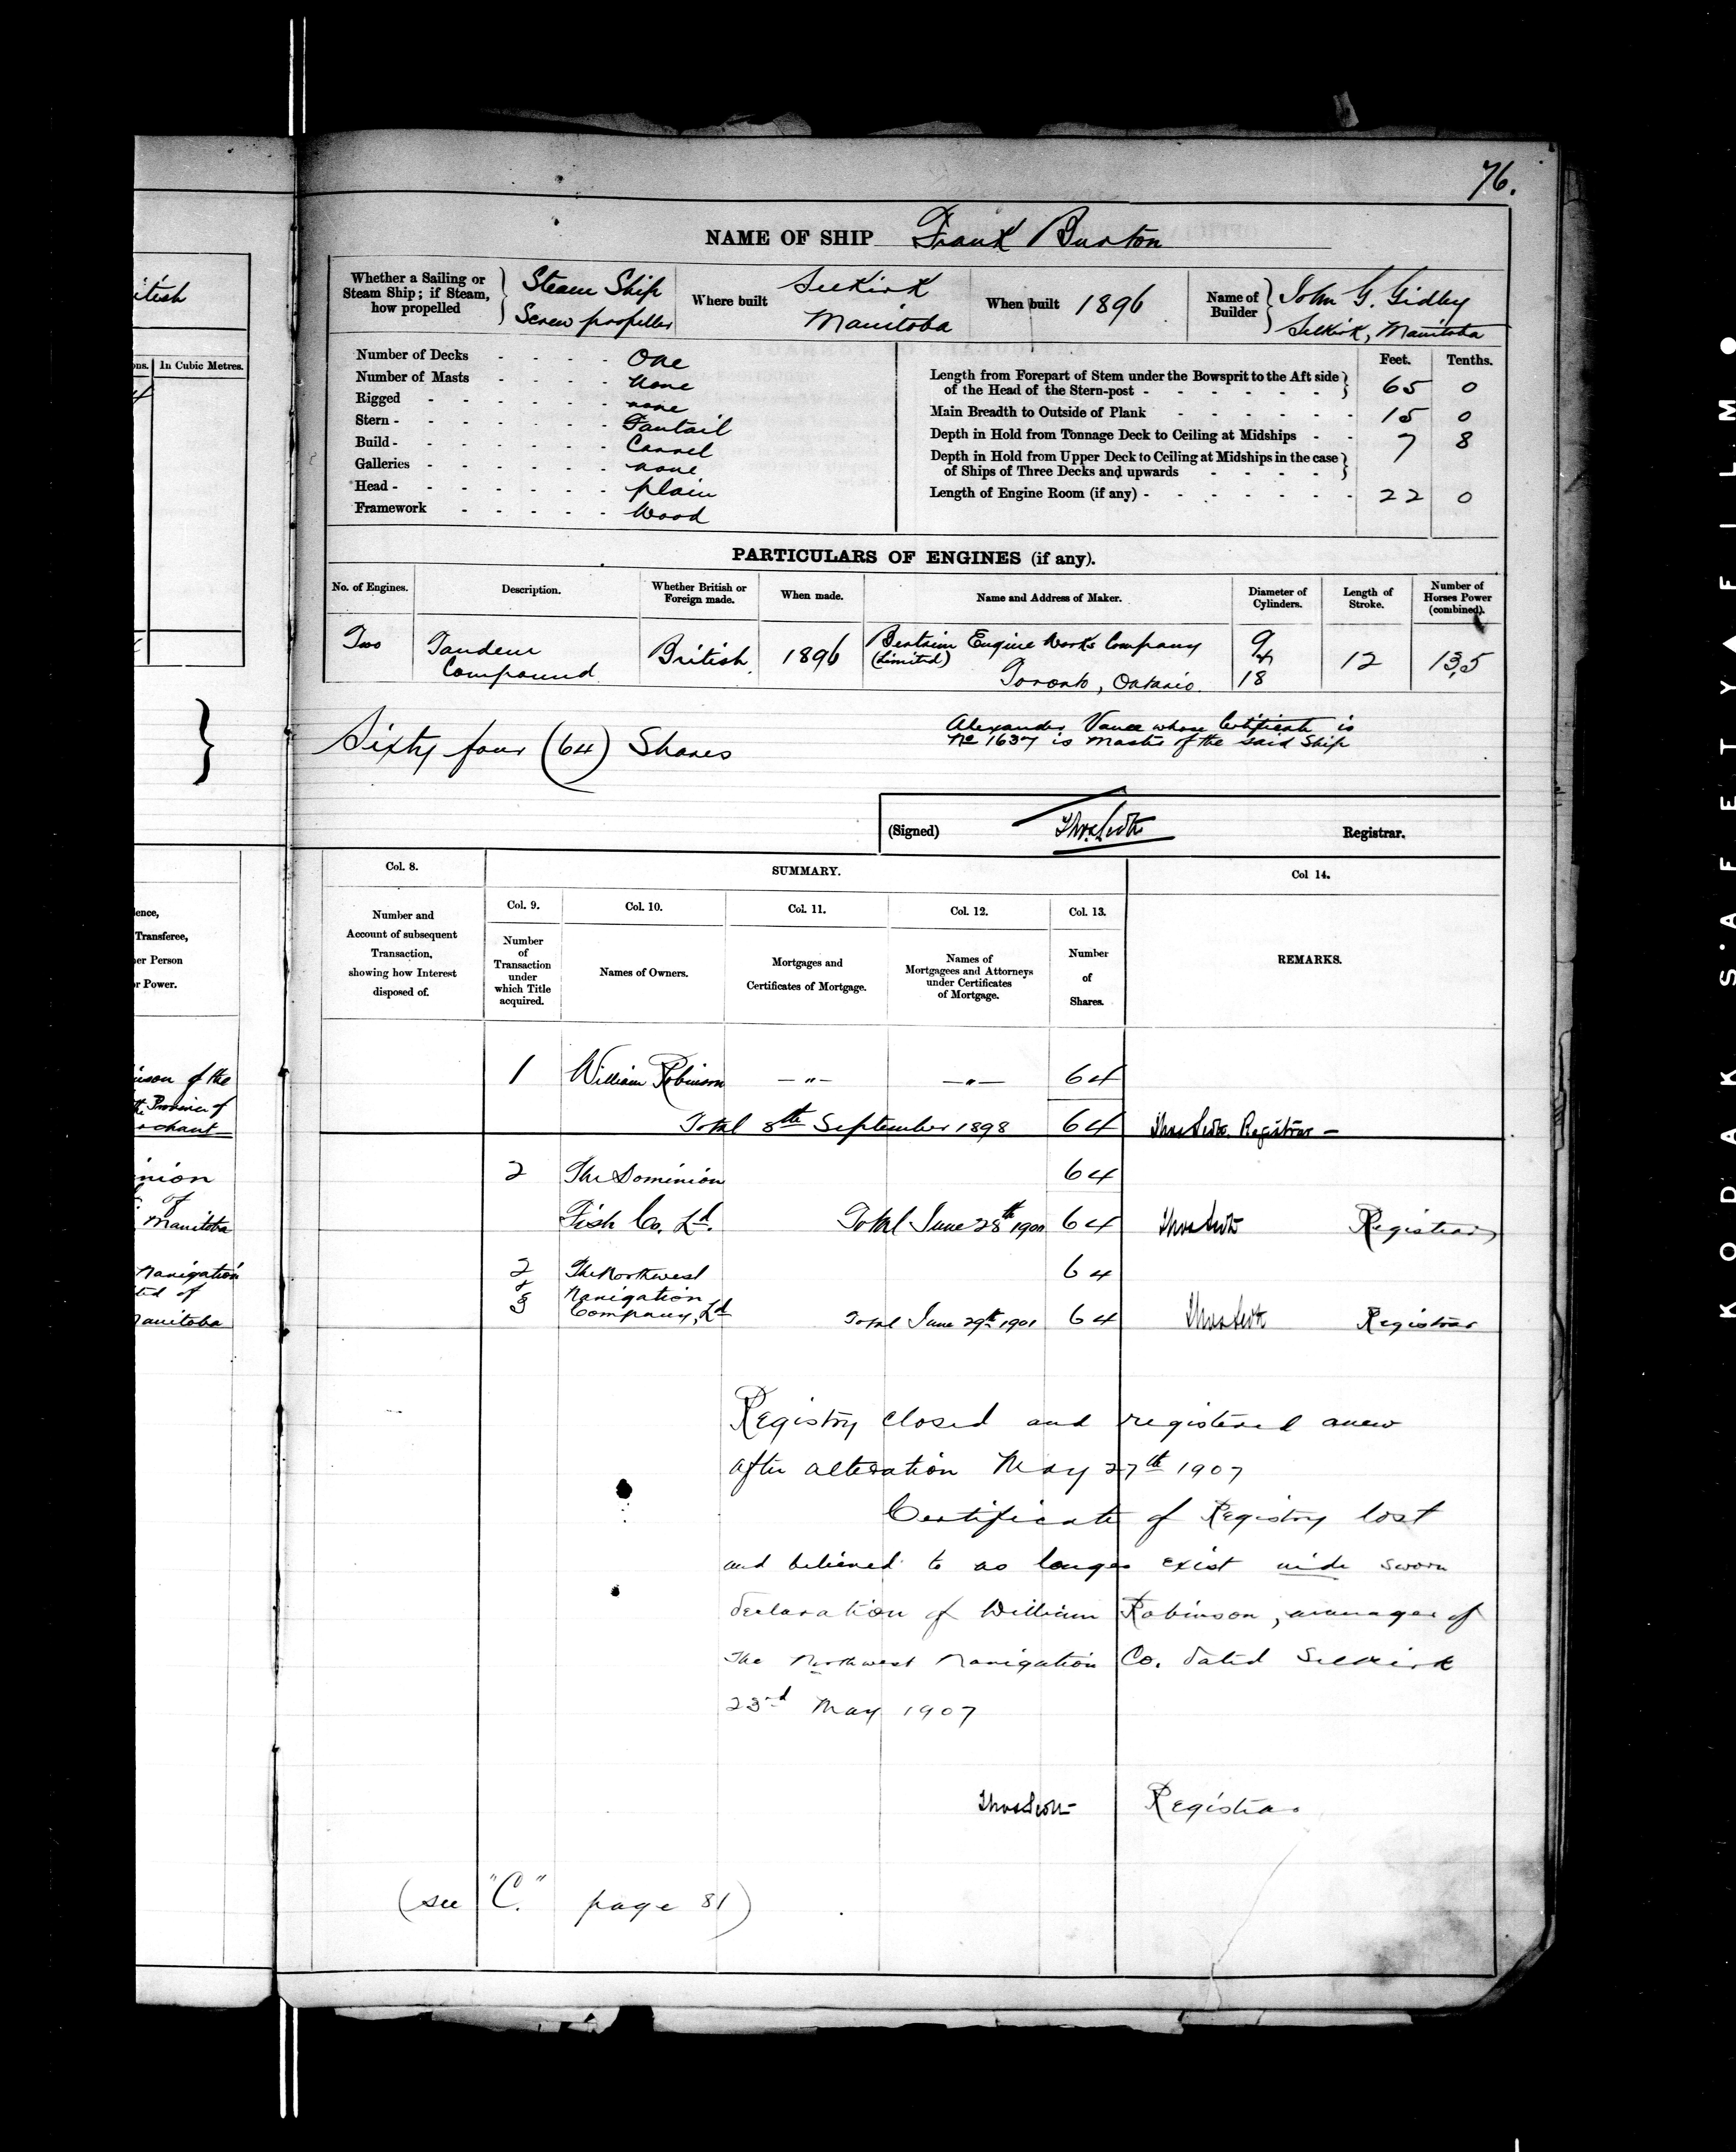 76.
NAME OF SHIP Frank Burton
itish
Whether a Sailing or
Steam Ship; if Steam,
how propelled
Steam Ship
Screw propeller
Where built
Selkirk
Manitoba
When built 1896
Name of
Builder
John G. Gidley
Selkirk, Manitoba
ons. In Cubic Metres.
Number of Decks - - - - One
Number of Masts - - - - None
Rigged - - - - - - none
Stern - - - - - - - Fantail
Build - - - - - - - Carvel
Galleries - - - - - - none
Head - - - - - - - plain
Framework - - - - - Wood
Feet. Tenths.
Length from Forepart of Stem under the Bowsprit to the Aft side
of the Head of the Stern-post - - - - - - 65 0
Main Breadth to Outside of Plank - - - - - - 15 0
Depth in Hold from Tonnage Deck to Ceiling at Midships - - 7 8
Depth in Hold from Upper Deck to Ceiling at Midships in the case
of Ships of Three Decks and upwards - - - -
Length of Engine Room (if any) - - - - - - - 22 0
PARTICULARS OF ENGINES (if any).
No. of Engines. Description. Whether British or
Foreign made. When made. Name and Address of Maker. Diameter of
Cylinders. Length of
Stroke. Number of
Horses Power
(combined).
Two Tandem
Compound British 1896 Bertram Engine Works Company
(Limited)
Toronto, Ontario. 9
&
18 12 13,5
Sixty four (64) Shares
Alexander Vance whose Certificate is
No 1637 is Master of the said Ship
(Signed) Thos Scott Registrar.
Col. 8. SUMMARY. Col 14.
Col. 9. Col. 10. Col. 11. Col. 12. Col. 13.
Number and
Account of subsequent
Transaction,
showing how Interest
disposed of.
Number
of
Transaction
under
which Title
acquired.
Names of Owners.
Mortgages and
Certificates of Mortgage.
Names of
Mortgagees and Attorneys
under Certificates
of Mortgage.
Number
of
Shares.
REMARKS.
ence,
Transferee,
er Person
r Power.
1 William Robinson — " — — " — 64
Total 8th September 1898 64 Thos Scott. Registrar –
inson of the
the Province of
rchant
2 The Dominion 64
Fish Co. Ld. Total June 28th 1900 64 Thos Scott Registrar
inion
of
Manitoba
2 The Northwest 64
& Navigation
3 Company, Ld Total June 29th 1901 64 Thos Scott Registrar
Navigation
ted of
Manitoba
Registry closed and registered anew
after alteration May 27th 1907
Certificate of Registry lost
and believed to no longer exist vide sworn
declaration of William Robinson, manager of
The Northwest Navigation Co. dated Selkirk
23rd May 1907
Thos Scott Registrar
(see "C." page 81)
KODAK SAFETY FILM